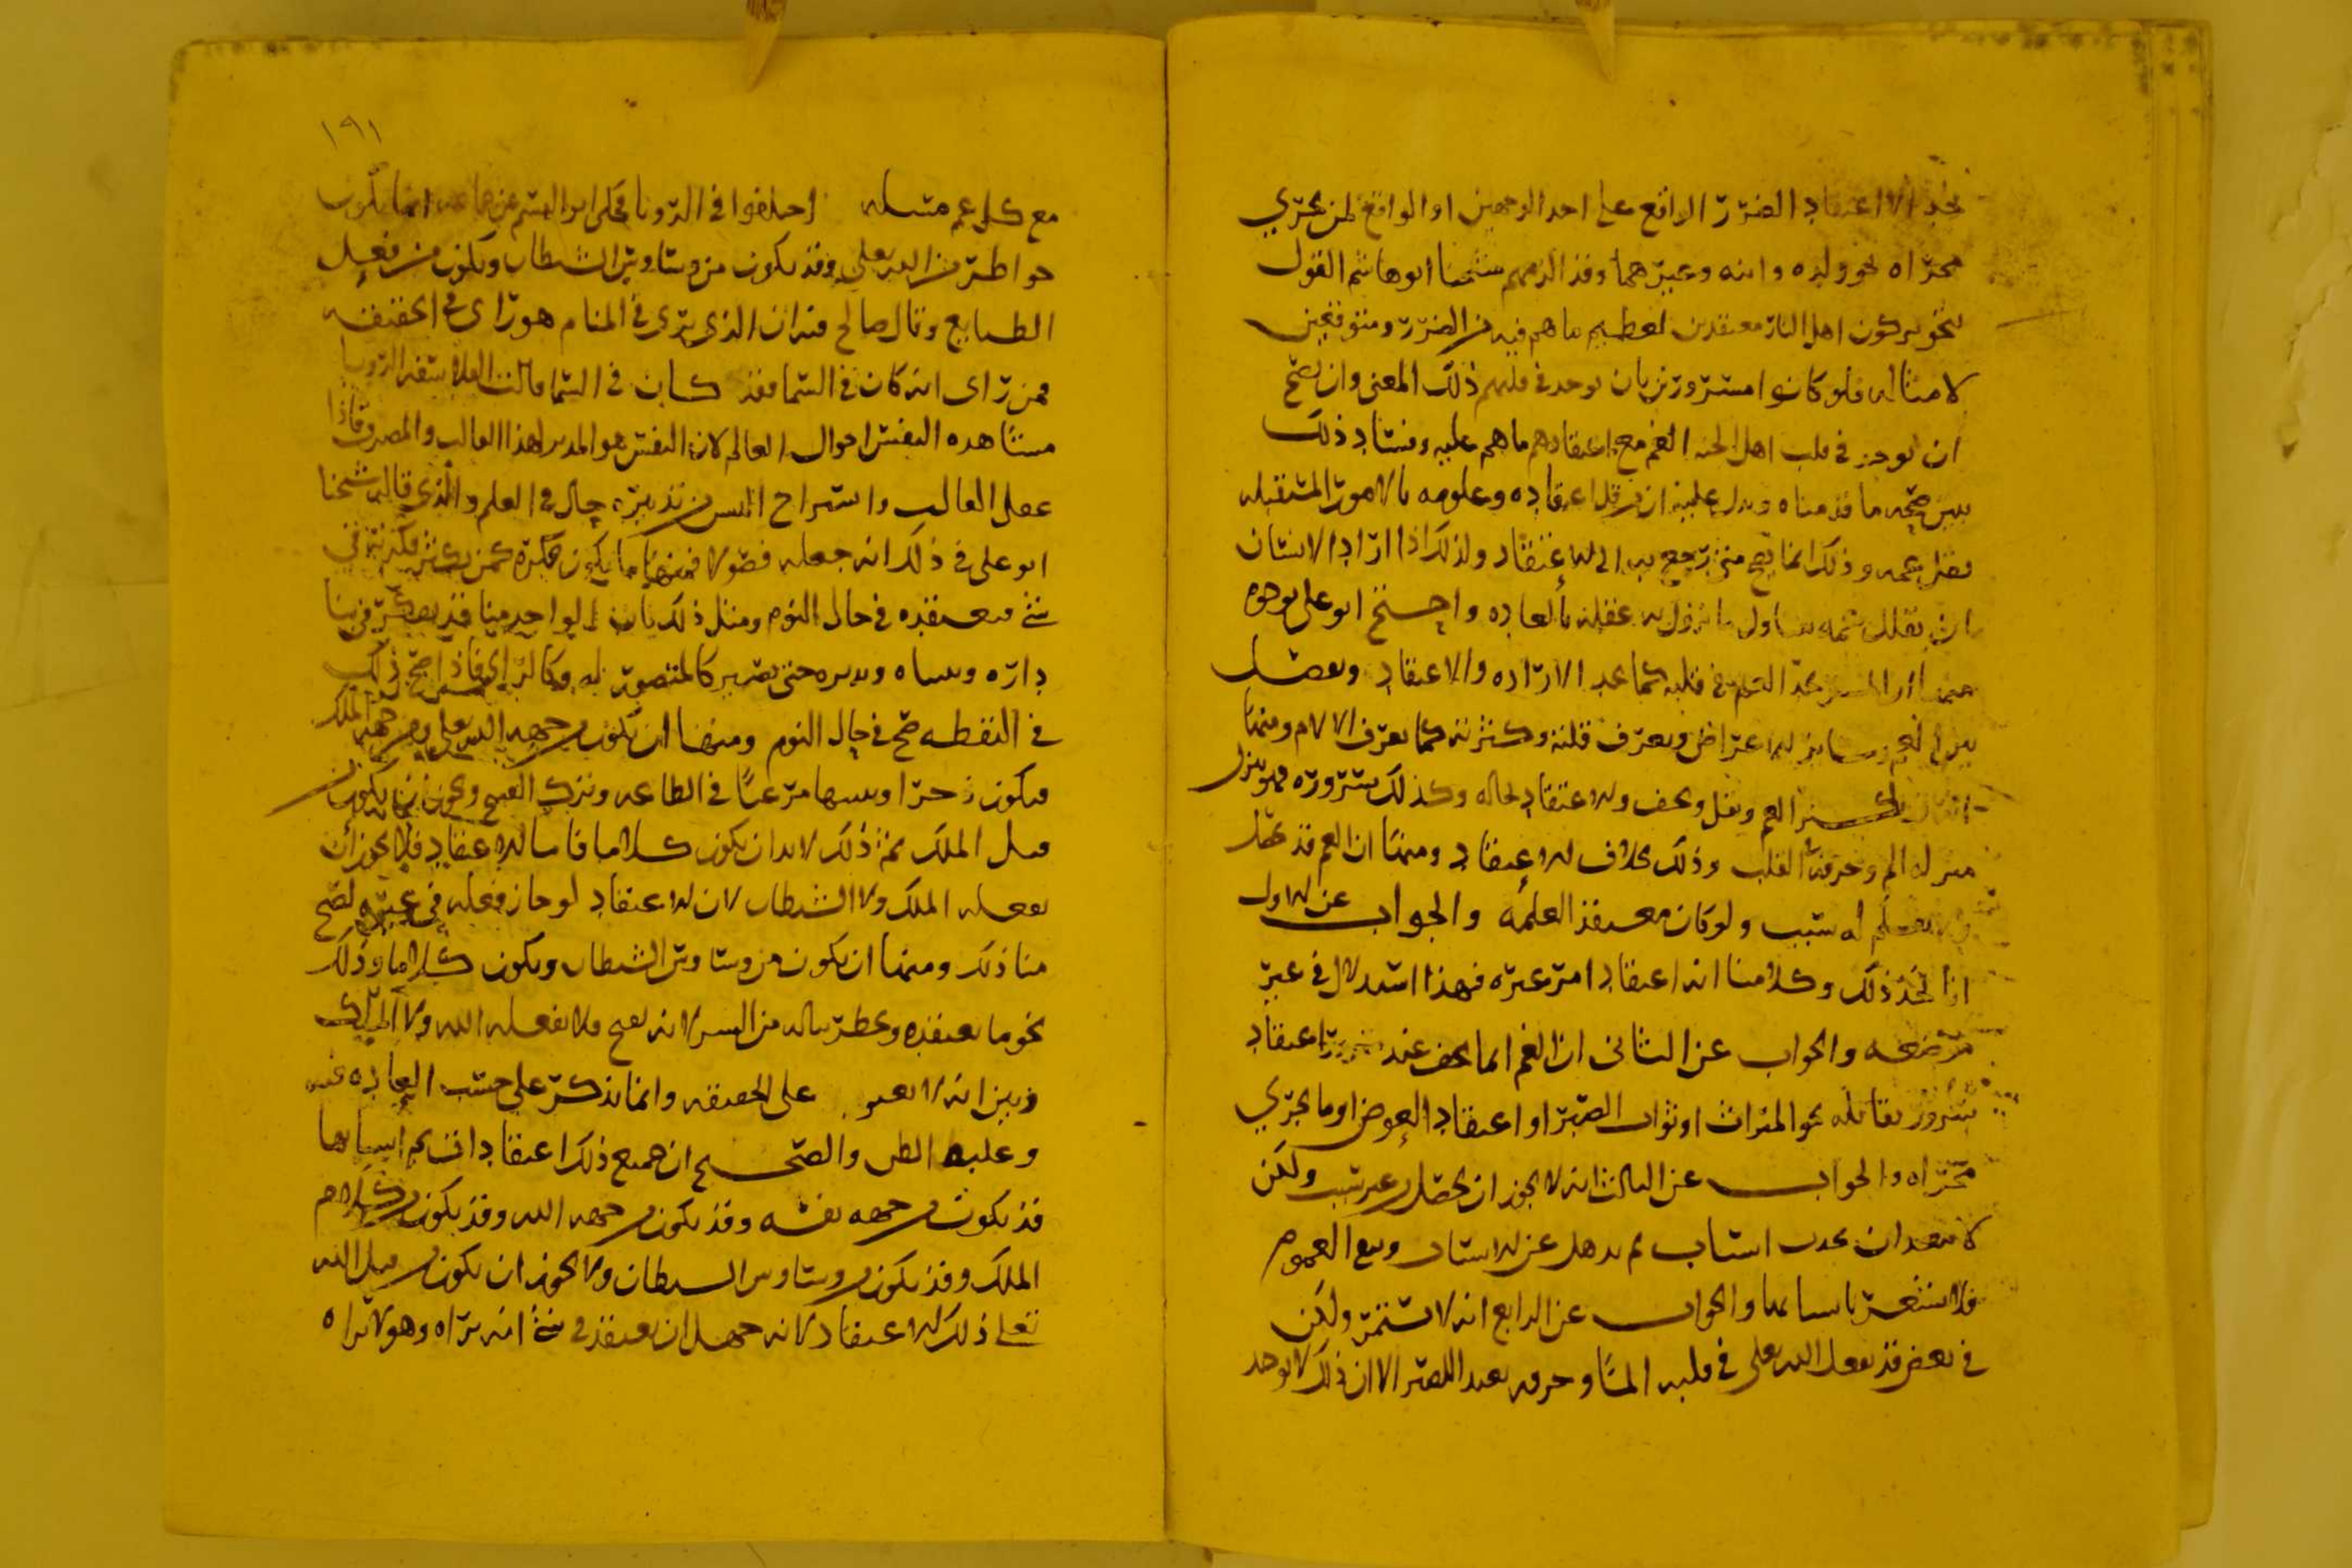 نجد الا اعتقاد الضرر الواقع على احد الوجهين او الواقع لمن يجري
مجراه نحو ولده وابنه وغيرهما وقد الزمهم شيخنا ابو هاشم القول
بتجويز كون اهل النار معتقدين لعظيم ما هم فيه من الضرر ومتوقعين
لامثاله فلو كانوا مسرورين بان يوجد في قلبهم ذلك المعنى وان يصح
ان يوجد في قلب اهل الجنه الغم مع اعتقادهم ما هم عليه وفساد ذلك
يبين صحه ما قدمناه ويدل عليه ان من قل اعتقاده وعلومه بالامور المستقبله
يقل غمه وذلك انما يصح متى رجع به الى الاعتقاد ولذلك اذا اراد الانسان
ان يقلل غمه تناول ما يزول به عقله بالعاده واحتج ابو علي بوجوه
منها ان الحي يجد الغم في قلبه كما يجد الاراده والاعتقاد ويفصل
بين الغم وسائر الاعراض ويعرف قلته وكثرته كما يعرف الالام ومنها
العم ويقل ويخف والاعتقاد بحاله وكذلك سروره فهو بمنزل
منزله الم وحرقه القلب وذلك بخلاف الاعتقاد ومنها ان الغم قد يحصل
ولا يعلم له سبب ولو كان معتقدا لعلمه والجواب عن الاول
انا نجد ذلك وكلامنا انه اعتقاد ام غيره فهذا استدلال في غير
موضعه والجواب عن الثاني ان الغم انما يخف عند اعتقاد
سرور يقابله نحو الميراث او ثواب الصبر او اعتقاد العوض او ما يجري
مجراه والجواب عن الثالث انه لا يجوز ان يحصل من غير سبب ولكن
لا يبعد ان يحدث اسباب ثم يذهل عن الاسباب ويبقى الغموم
فلا يشعر باسبابها والجواب عن الرابع انه لا يستمر ولكن
في بعض قد يفعل الله تعلى في قلبه الما وحرقه بعد الا ان ذلك لا يوجد
١٩١
مع كل غم مسله اختلفوا في الرويا فحكى ابو القسم عن انما يكون
خواطر من الله تعلى وقد يكون من وساوس الشيطان ويكون من فعل
الطبايع وقال صالح قبه ان الذي يرى في المنام هو راي في الحقيقه
فمن راى انه كان في السما فقد كان في السما وقالت الفلاسفه الرويا
مشاهده النفس احوال العالم لان النفس هو المدبر لهذا القالب والمصرف فاذا
عقل القالب واستراح النفس من تدبيره جال في العلم والذي قاله شيخنا
ابو علي في ذلك انه جعله فصولا فمنها ما يكون فكره كمن يكثر فكرته في
شي فيعتقده في حال النوم ومثل ذلك بان الواحد منا قد يفكر في بنا
داره وبنيانه وتدبيره حتى يصير كالمتصور له وكالراي فاذا صح ذلك
في اليقظه صح في حال النوم ومنها ان يكون من جهه الله تعلى او من جهه الملك
فيكون زجرا وتنبيها مرغبا في الطاعه وترك القبيح ويجوز ان يكون
قبل الملك غير ذلك لابد ان يكون كلاما فاما الاعتقاد فلا يجوز ان
يفعله الملك ولا الشيطان لان الاعتقاد لو جاز فعله في غيره لصح
منا ذلك ومنها ان يكون من وساوس الشيطان ويكون كلاما وذلك
نحو ما يعتقده ويخطر بباله من السر لانه يقبح فلا يفعله الله ولا الملك
وبين انه لا يعبر على الحقيقه وانما يذكر على حسب العاده فيه
وعليه الظن والصحيح ان جميع ذلك اعتقادات ثم اسبابها
قد يكون من جهه نفسه وقد يكون من جهه الله وقد يكون من كلام
الملك وقد يكون من وساوس الشيطان ولا يجوز ان يكون من قبل الله
تعلى ذلك الاعتقاد لانه جهل ان يعتقد في شي انه يراه وهو لا يراه